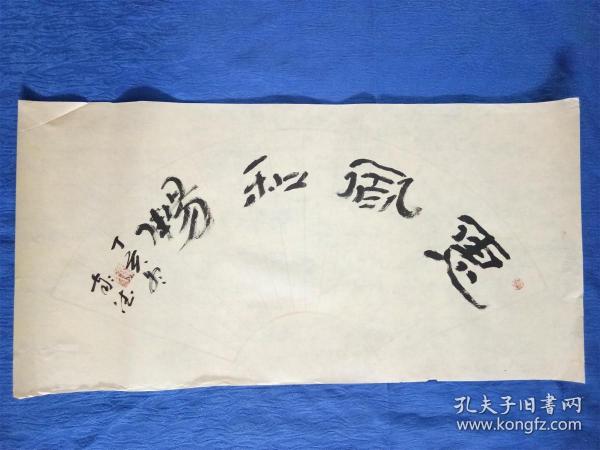 惠風和暢
丁亥
孔夫子旧書网
www.kongfz.com